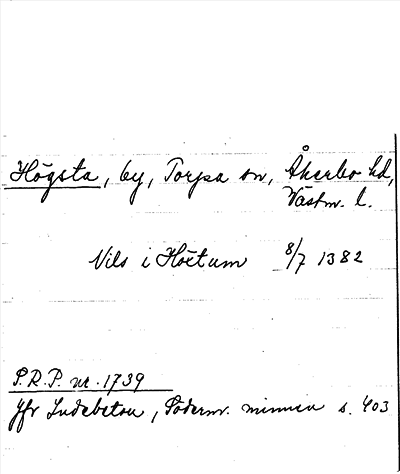 Högsta, by, Torpa sn, Åkerbo hd,
Västm. l.
Nils i Höxtum 8/7 1382
S.R.P. nr. 1739
Jfr Lindebeton, Söderm. minnen s. 403